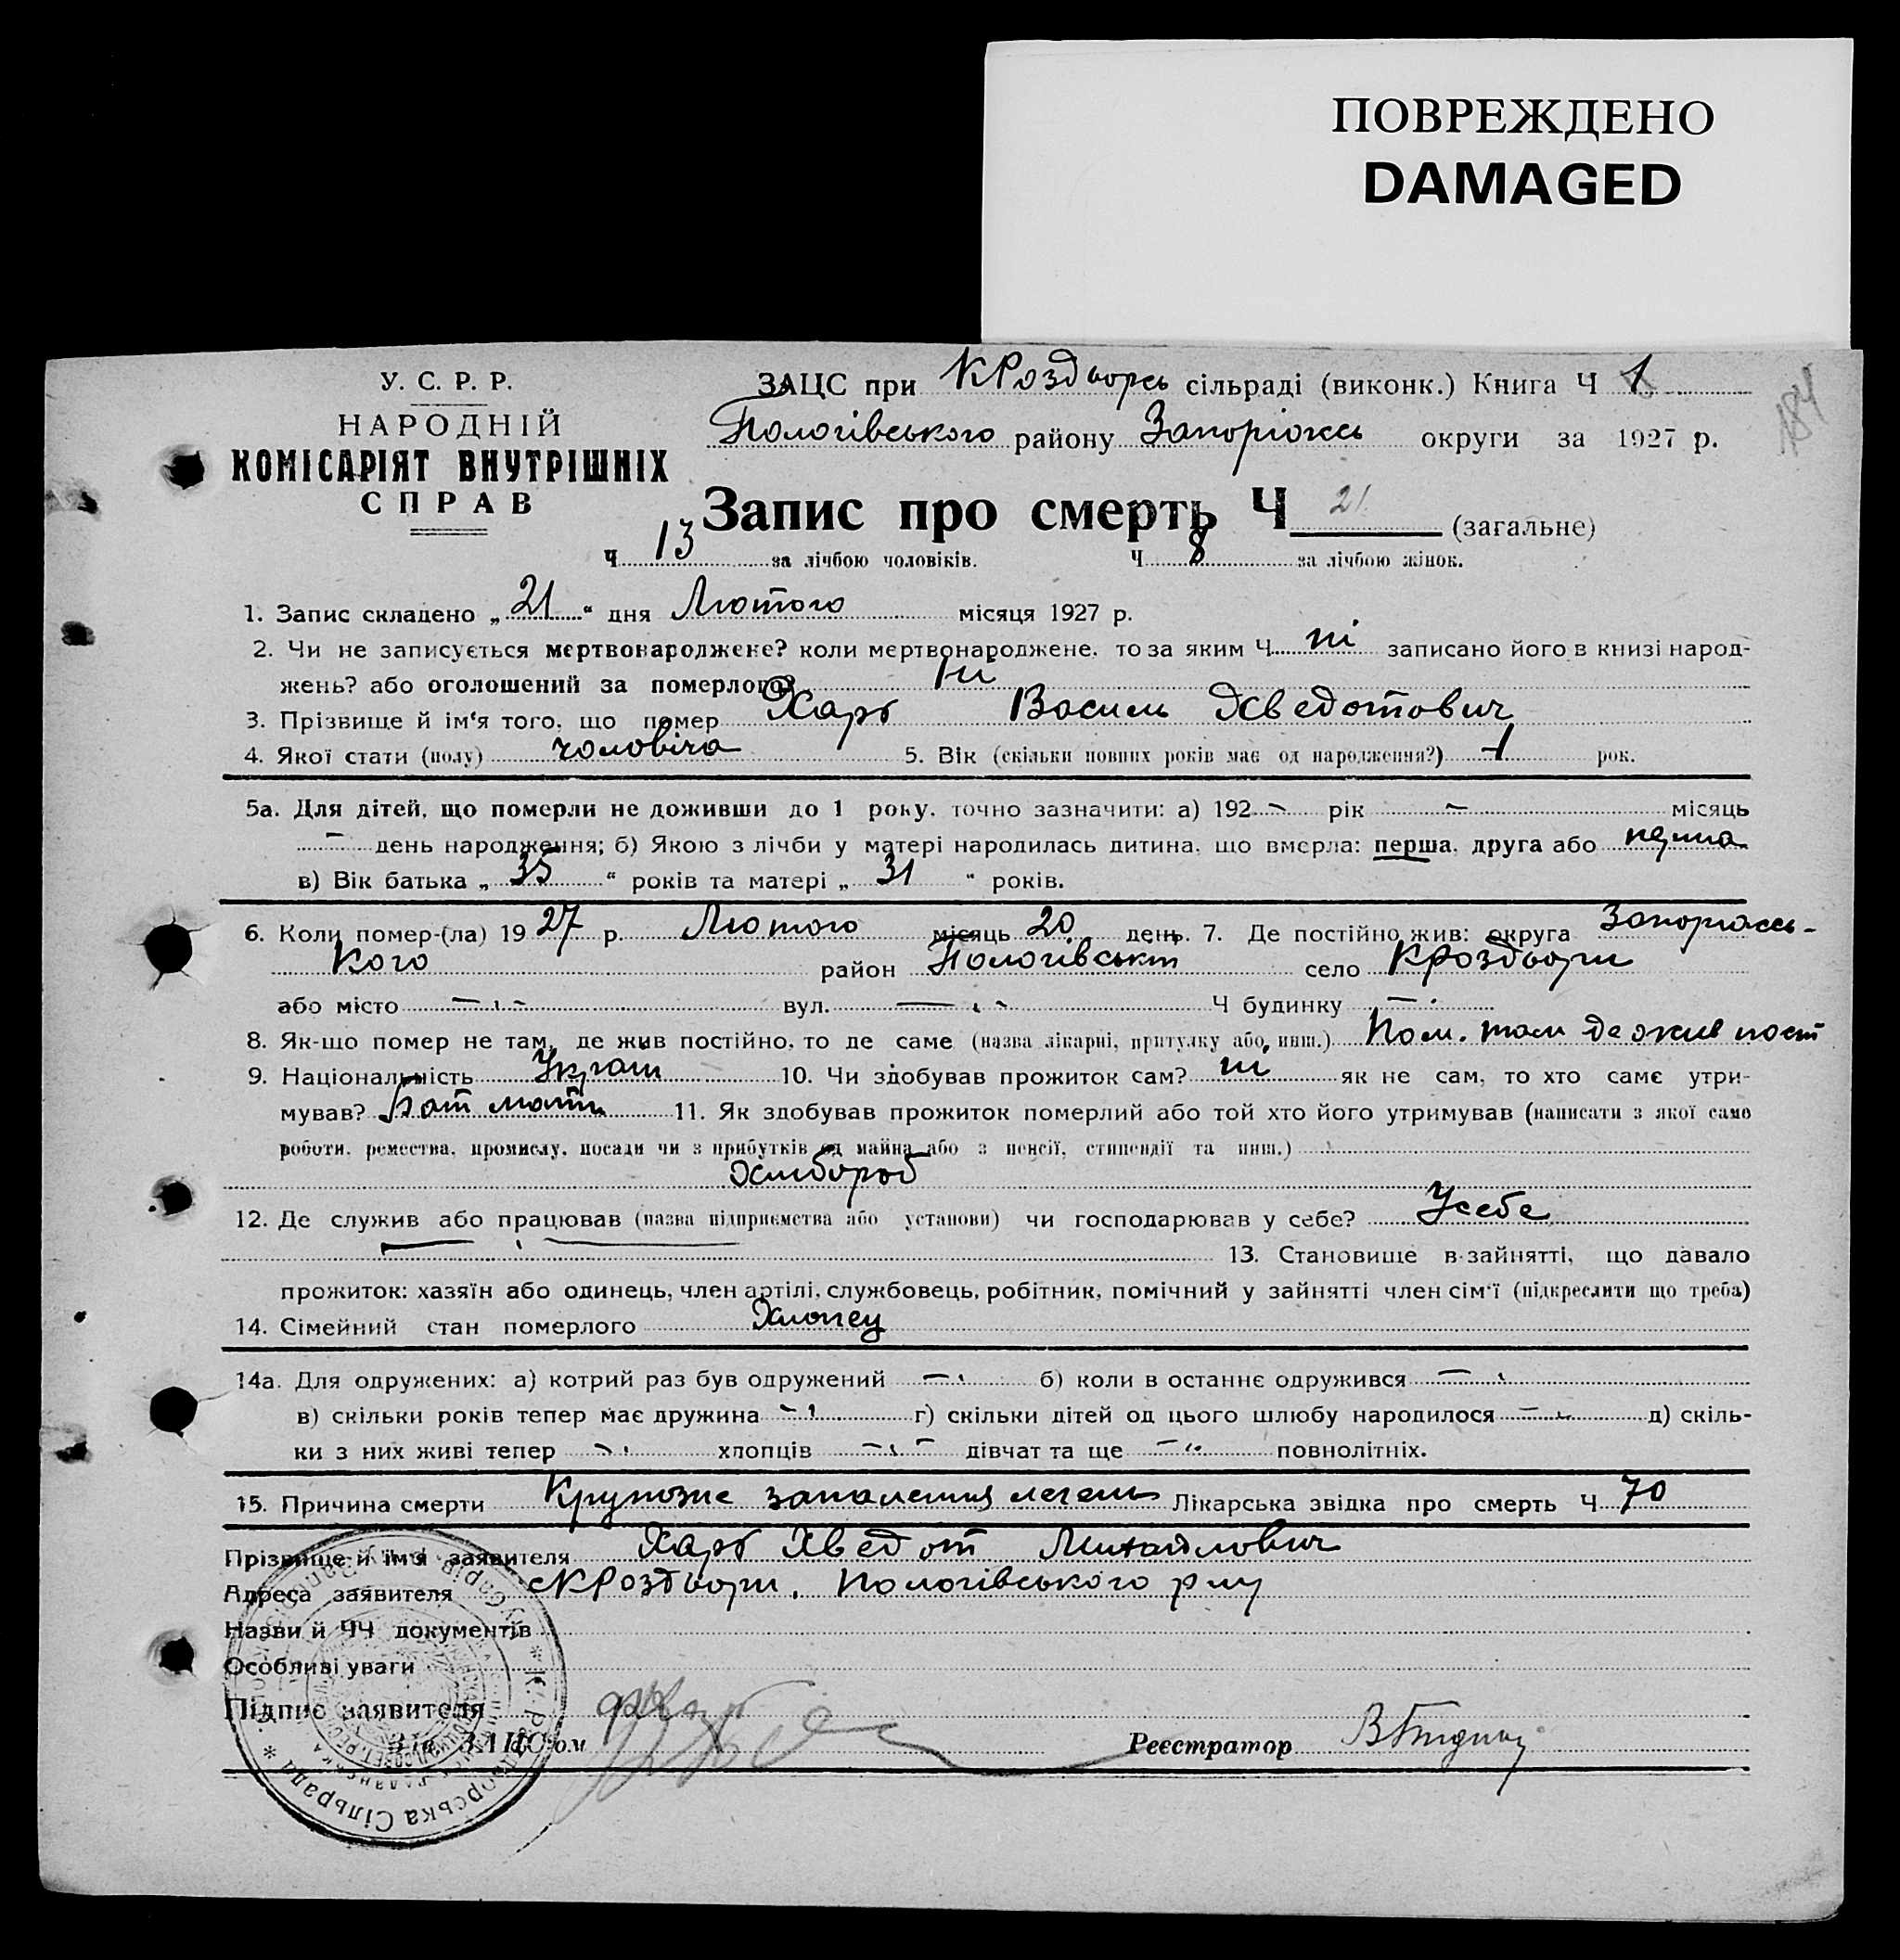 ПОВРЕЖДЕНО
DAMAGED
184
У. С. Р. Р.
НАРОДНІЙ
КОМІСАРІЯТ ВНУТРІШНІХ
СПРАВ
ЗАЦС при КРоздорсь сільраді (виконк.) Книга Ч 1
Пологівського району Запоріжсь округи за 1927 р.
Запис про смерть Ч 21 (загальне)
Ч 13 за лічбою чоловіків. Ч 8 за лічбою жінок.
1. Запис складено „ 21 “ дня Лютого місяця 1927 р.
2. Чи не записується мертвонароджене? коли мертвонароджене, то за яким Ч ні записано його в книзі народ-
жень? або оголошений за померлого? Ні
3. Прізвище й ім‘я того, що помер Харь Василь Хведотович
4. Якої стати (полу) чоловіча 5. Вік (скільки повних років має од народження?) 1 рок.
5а. Для дітей, що померли не доживши до 1 року, точно зазначити: а) 192 – рік – місяць
– день народження; б) Якою з лічби у матері народилась дитина, що вмерла: перша, друга або
в) Вік батька „ 35 “ років та матері „ 31 “ років.
6. Коли помер-(ла) 19 27 р. Лютого місяць 20 день. 7. Де постійно жив: округа Запоріжсь-
кого район Пологівськ село КРоздори
або місто — вул. — Ч будинку —
8. Як-що помер не там, де жив постійно, то де саме (назва лікарні, притулку або инш.) Пом. там де жив пост
9. Національність Україн 10. Чи здобував прожиток сам? ні як не сам, то хто саме утри-
мував? Бат мати 11. Як здобував прожиток померлий або той хто його утримував (написати з якої само
роботи, ремества, промислу, посади чи з прибутків од майна або з пенсії, стипендії та инш.)
Хлибороб
12. Де служив або працював (назва підприємства або установи) чи господарював у себе? Усебе
13. Становище в зайнятті, що давало
прожиток: хазяїн або одинець, член артілі, службовець, робітник, помічний у зайнятті член сім‘ї (підкреслити що треба)
14. Сімейний стан померлого Хлопец
14а. Для одружених: а) котрий раз був одружений — б) коли в останнє одружився —
в) скільки років тепер має дружина — г) скільки дітей од цього шлюбу народилося — д) скіль-
ки з них живі тепер — хлопців — дівчат та ще — повнолітніх.
15. Причина смерти Крупозне запалення легень Лікарська звідка про смерть Ч 70
Прізвище й ім‘я заявителя Харь Хведот Михайлович
Адреса заявителя КРоздори, Пологівського р-ну
Назви й ЧЧ документів
Особливі уваги
Підпис заявителя
Зав. ЗАЦС‘ом Реєстратор
Сільрада